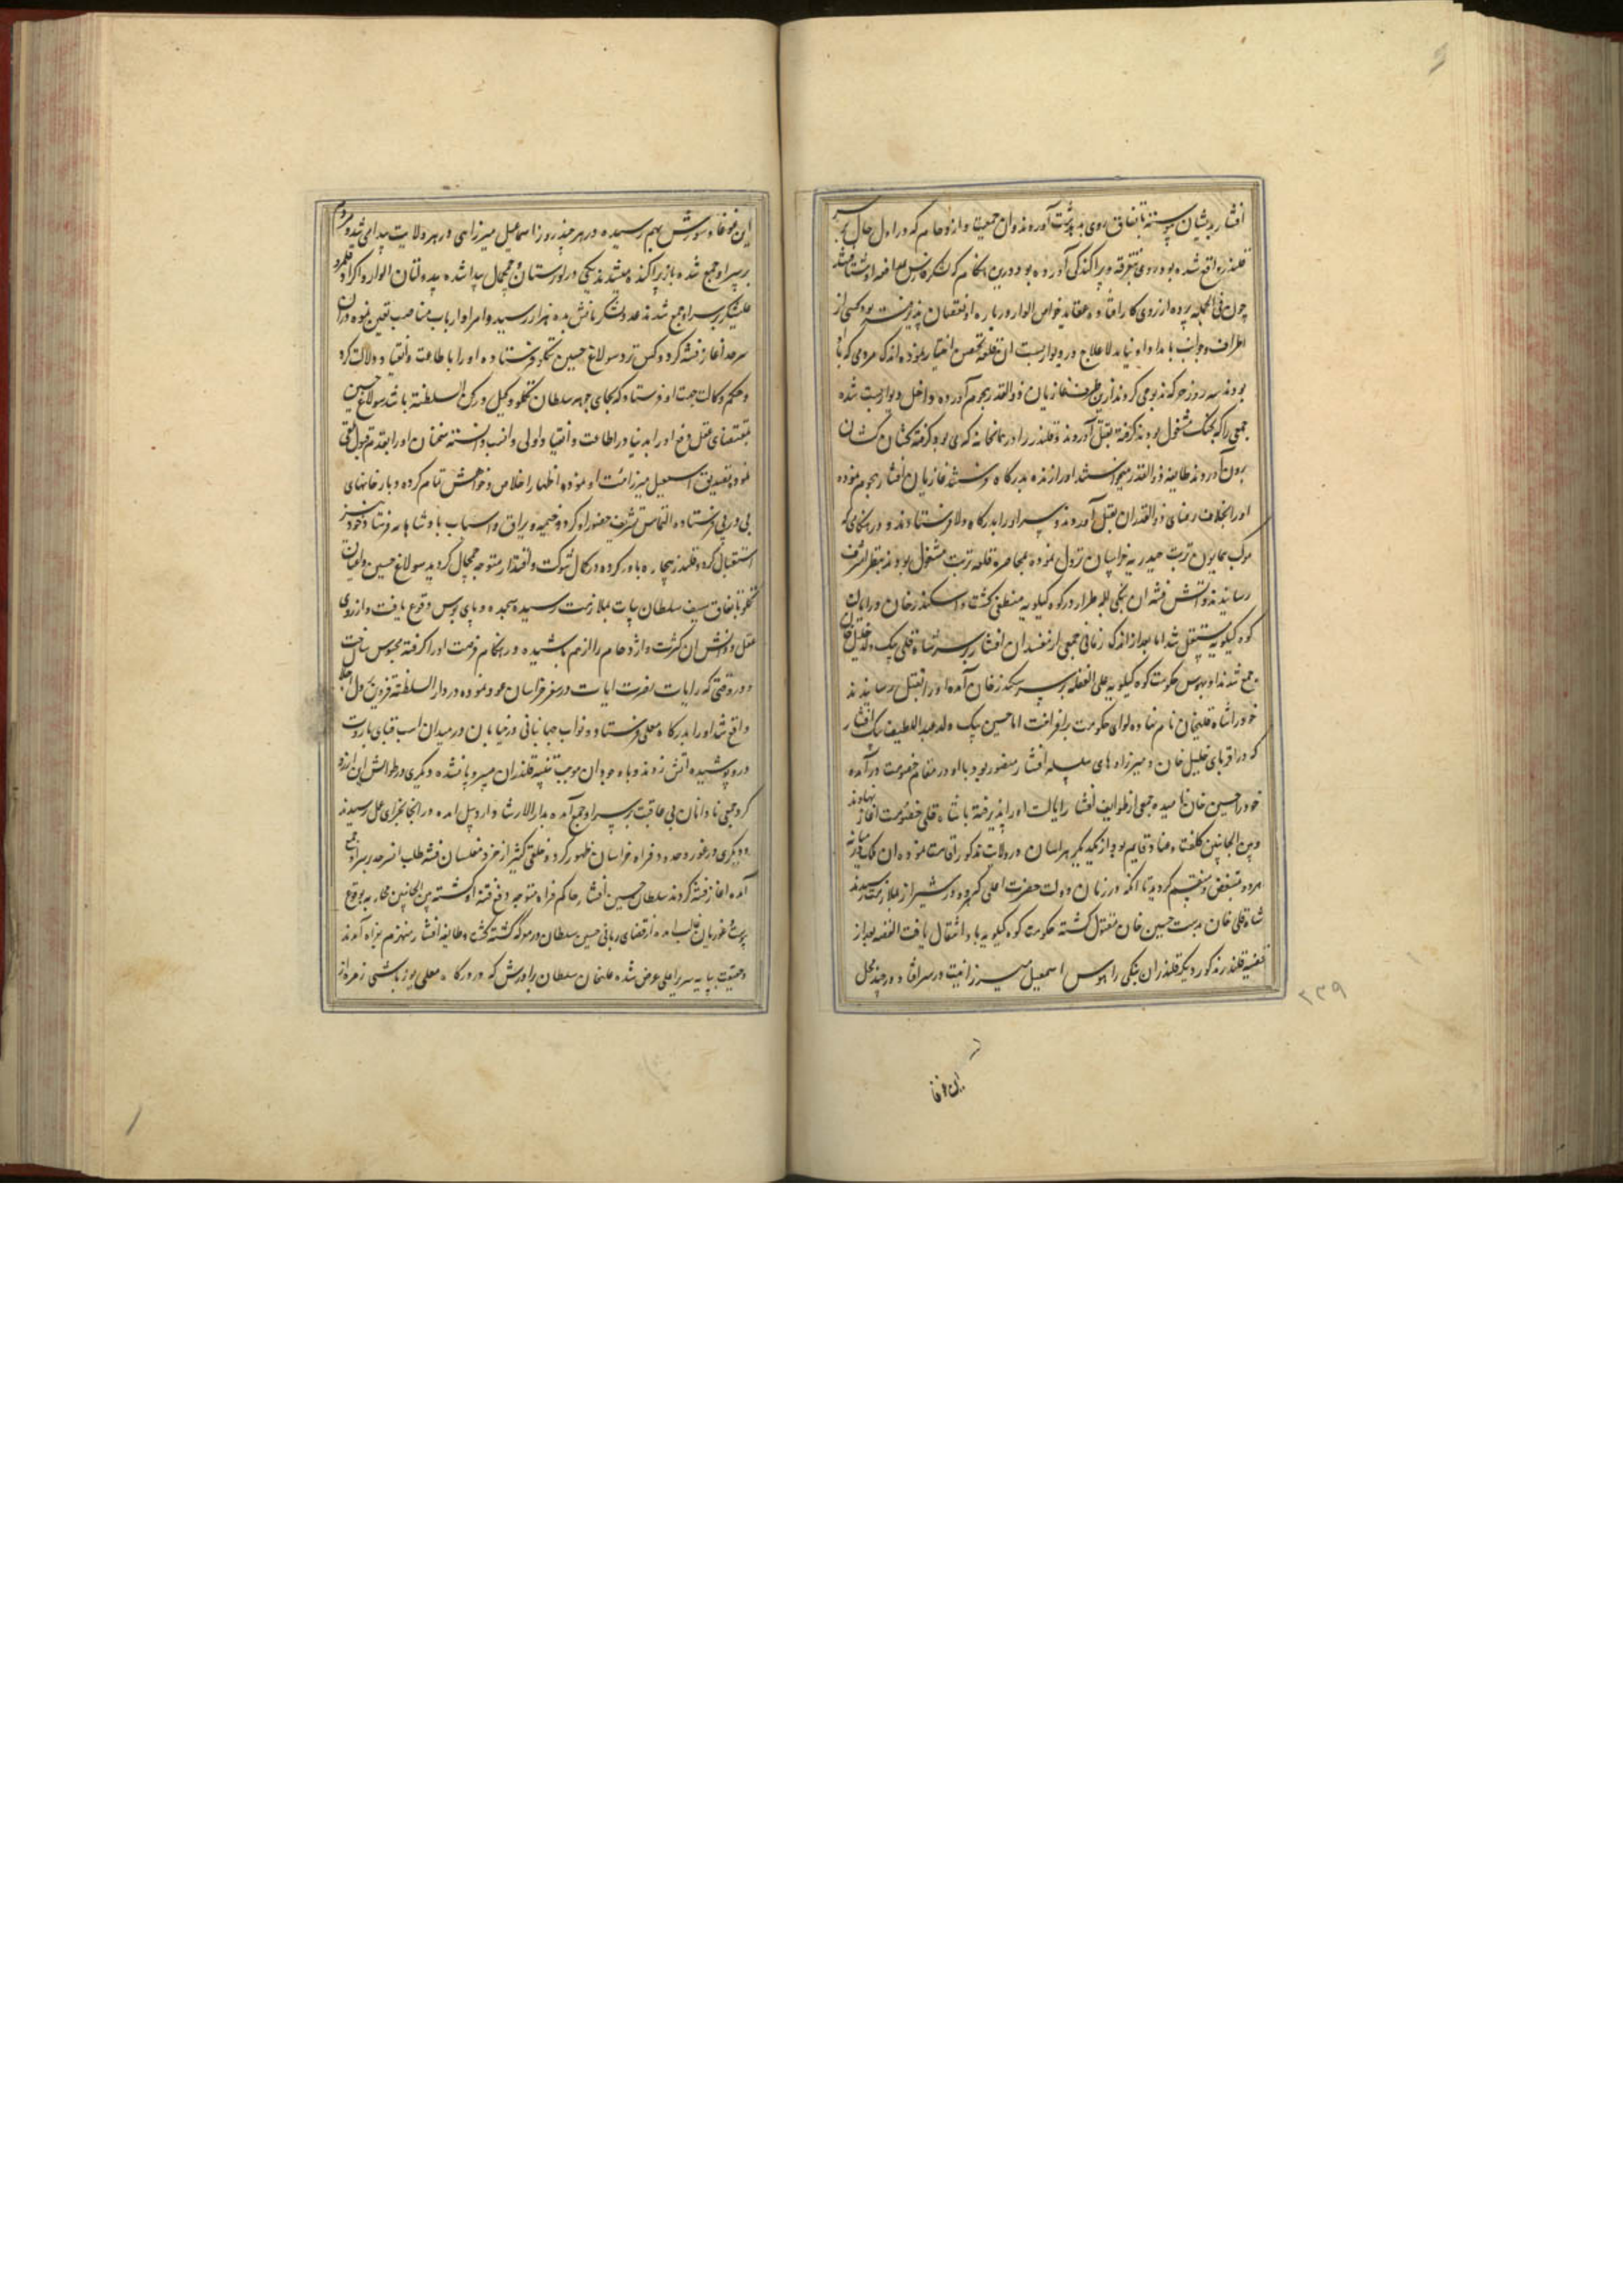 افشار بدیشان پیوسته باتفاق روی بدو پشت آوردند و ان جمعیت و ازدحام که در اول حال بر سر
قلندر واقع شده بود روی بتفرقه و پراکندگی آورده بود درین هنکام که لشکر فارس بمدافعه او شتافتند
چون فی الجمله پرده از روی کار افتاده و عقاید خواص الوار درباره او نقصان پذیرفته بود کسی از
اطراف و جوانب بامداد او نیامد لاعلاج در دیواربست ان قلعه تحصن اختیار نموده اندک مردمی که با
بودند سه روز حرکة مذبوحی کردند ازین طرف غازیان ذوالقدر هجوم آورده داخل دیواربست شده
جمعی را که بجنک مشغول بودند کرفته بقتل آوردند و قلندر را در همانخانه که می بود کرفته کشان کشان
بیرون آوردند طایفه ذوالقدر میخواستند او را زنده بدرکاه فرستند غازیان افشار هجوم نموده
او را بخلاف رضای ذوالقدران بقتل آوردند و سر او را بدرکاه والا فرستادند و در هنکامی که
موکب همایون تربت حیدریه خراسان نزول نموده بمحاصره قلعه تربت مشغول بودند بنظر اشرف
رسانیدند و آتش فتنه ان بنکی طرار در کوه کیلویه منطفی کشت و اسکندر خان در ایالت
کوه کیلویه مستقل شد اما بعد از اندک زمانی جمعی از مفسدان افشار بر سر شاه قلی بیک ولد خلیل خان
جمع شدند او بهوس حکومت کوه کیلویه علی الغفله بر سر اسکندر خان آمده او را بقتل رسانیدند
خود را شاه قلیخان نام نهاده لوای حکومت برافراخت اما حسین بیک ولد عبد اللطیف بیک افشار
که در اقربای خلیل خان و میرزاده های سلسله افشار منظور بود با او در مقام خصومت درآمده
خود را حسین خان نامیده جمعی از طوایف افشار ایالت او را پذیرفته با شاه قلی خصومت آغاز نهادند
و بین الجانبین کلفت و عناد قایم بود از یکدیکر هراسان در ولایت مذکور اقامت نموده ان ملک در میانه
مردود منقسم کردید تا انکه در زمان دولت حضرت اعلی که در شیراز بملازمت رسیدند
شاه قلی خان بدست حسین خان مقتول کشته حکومت کوه کیلویه باو انتقال یافت القصه بعد از
قضیه قلندر مذکور دیکر قلندران بنکی را هوس اسمعیل میرزائیت در سر افتاد و در چند محل
۲۳۹
این غوغا
این غوغا و شورش بهم رسیده در هر چند روز اسماعیل میرزائی در هر ولایت پیدا می شد و مردم
بر سر او جمع شده باز پراکنده میشدند یکی در لورستان و چمچال پیدا شده بدولتان الوار و اکراد قلمرو
علیشکر بر سر او جمع شدند عدد لشکریانش بده هزار رسید و امرا و ارباب مناصب تعیین نموده در ان
سرحد آغاز فتنه کرد و کس نزد سولاغ حسین تکلو فرستاده او را باطاعت و انقیاد دلالت کرد
و حکم وکالت جهت او فرستاد که بجای جهر سلطان تکلو وکیل و رکن السلطنة باشد سولاغ حسین
بمقتضای عقل دفع او را بدینار در اطاعت و انقیاد اولی و انسب دانسته سخنان او را بقدم قبول تلقی
نموده بتصدیق اسمعیل میرزائیت او نموده اظهار اخلاص و خواهش تمام کرده و بارخانهای
پی در پی فرستاده التماس تشریف حضور او کرد و خیمه و یراق و اسباب پادشاهانه فرستاد و خود نیز
استقبال کرده قلندر بیچاره باور کرده در کمال شوکت و اقتدار متوجه چمچال کردید سولاغ حسین و اعیان
تکلو باتفاق سیف سلطان بیات بملازمت رسیده سجده و پای بوس وقوع یافت و از روی
عقل و دانش ان کثرت و ازدحام را از هم پاشیده در هنکام فرصت او را کرفته محبوس ساخت
و در وقتی که رایات نصرت ایات در سفر خراسان عود نموده در دار السلطنة قزوین نزول اجلال
واقع شد او را بدرکاه معلی فرستاد و نواب جهانبانی در خیابان در میدان اسب قبای باروت
درو پوشیده آتش زدند و با وجود ان موجب تنبیه قلندران بی سروپا نشده دیکری در طوالش این اراده
کرد جمعی نادانان بی عاقبت بر سر او جمع آمده بدار الارشاد اردبیل امده در انجا بجزای عمل رسیدند
و دیکری در غور و حدود فراه خراسان ظهور کرد و خلقی کثیر از خرد مفلسان فتنه طلب انسرحد بر سر او جمع
آمده اغاز فتنه کردند سلطان حسین افشار حاکم فراه متوجه دفع فتنه او کشته بین الجانبین محاربه بوقوع
پیوست غوریان غالب امده از قضای ربانی حسین سلطان در معرکه کشته کشت و طایفه افشار منهزم بفراه آمدند
و حقیقت بپایه سریر اعلی عرض شده علیخان سلطان برادرش که در درکاه معلی یوزباشی زمره از